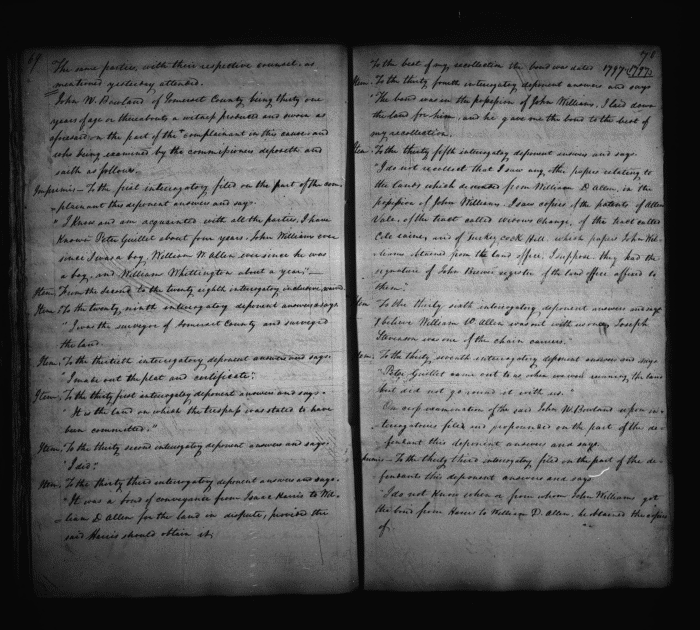 69
The same parties, with their respective counsel, as
mentioned yesterday attended.
John W. Bowland of Somerset County being thirty one
years of age or thereabouts a witness produced and sworn as
aforesaid on the part of the complainant in this cause and
who being examined by the commissioners deposeth and
saith as follows.
Imprimis - To the first interrogatory filed on the part of the com-
plainant this deponent answers and says.
"I know and am acquainted with all the parties, I have
known Peter Guillet about four years, John Williams ever
since I was a boy, William W. Allen ever since he was
a boy, and William Whittington about a year."
Item. From the second to the twenty eighth interrogatory inclusive, waived.
Item. To the twenty ninth interrogatory deponent answers & says
"I was the surveyor of Somerset County and surveyed
the land.
Item. To the thirtieth interrogatory deponent answers and says.
"I made out the plat and certificate."
Item. To the thirty first interrogatory deponent answers and says.
"It is the land on which the trespass was stated to have
been committed."
Item. To the thirty second interrogatory deponent answers and says.
"I did."
Item. To the thirty third interrogatory deponent answers and says.
"It was a bond of conveyance from Isaac Harris to Wil-
liam D. Allen for the land in dispute, provided the
said Harris should obtain it.
70
To the best of my recollection the bond was dated 1797 (1797)
Item. To the thirty fourth interrogatory deponent answers and says
"The bond was in the possession of John Williams, I laid down
the land for him, and he gave me the bond to the best of
my recollection.
Item. To the thirty fifth interrogatory deponent answers and says.
"I do not recollect that I saw any other papers relating to
the lands which from William D. Allen, in the
possession of John Williams, I saw copies of the patents of Allen
Vale, of the tract called Widows Change, of the tract called
and of Turkey cock Hall, which papers John Wil-
liams obtained from the land office, I suppose they had the
signature of John Brewer register of the land office affixed to
them."
Item. To the thirty sixth interrogatory deponent answers and says
"I believe William W. Allen was not with us or Joseph
Stevenson was one of the chain carriers."
Item. To the thirty seventh interrogatory deponent answers and says
"Peter Guillet came out to us when we were running the land
but did not go round it with us."
On cross examination of the said John W. Bowland upon in-
terrogatories filed and propounded on the part of the de-
fendant this deponent answers and says.
Imprimis - To the thirty third interrogatory filed on the part of the de-
fendants this deponent answers and says
"I do not know when or from whom John Williams got
the bond from Harris to William D. Allen, he obtained the copies
of